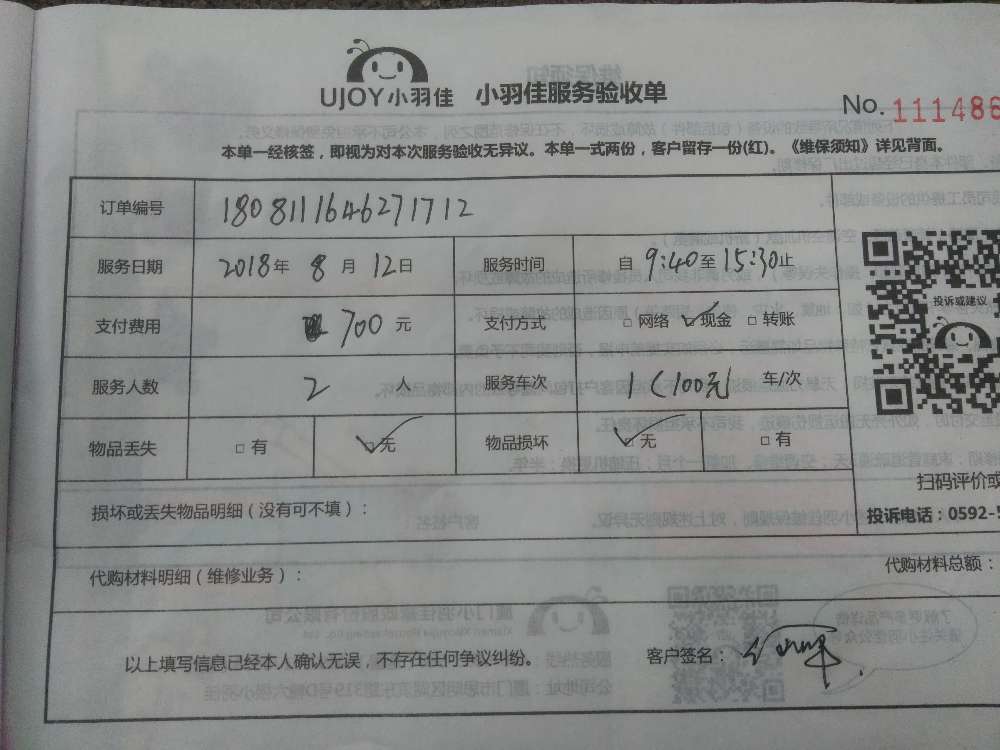 UJOY小羽佳 小羽佳服务验收单
No. 111486
本单一经核签，即视为对本次服务验收无异议。本单一式两份，客户留存一份(红)。《维保须知》详见背面。
订单编号 1808111646271712
服务日期 2018年 8 月 12日 服务时间 自 9:40 至 15:30 止
支付费用 700 元 支付方式 □ 网络 ☑ 现金 □ 转账
服务人数 2 人 服务车次 1 (100元) 车/次
物品丢失 □ 有 ☑ 无 物品损坏 ☑ 无 □ 有
投诉或建议
扫码评价或
损坏或丢失物品明细（没有可不填）：
投诉电话：0592-5
代购材料明细（维修业务）：
代购材料总额：
以上填写信息已经本人确认无误，不存在任何争议纠纷。 客户签名：